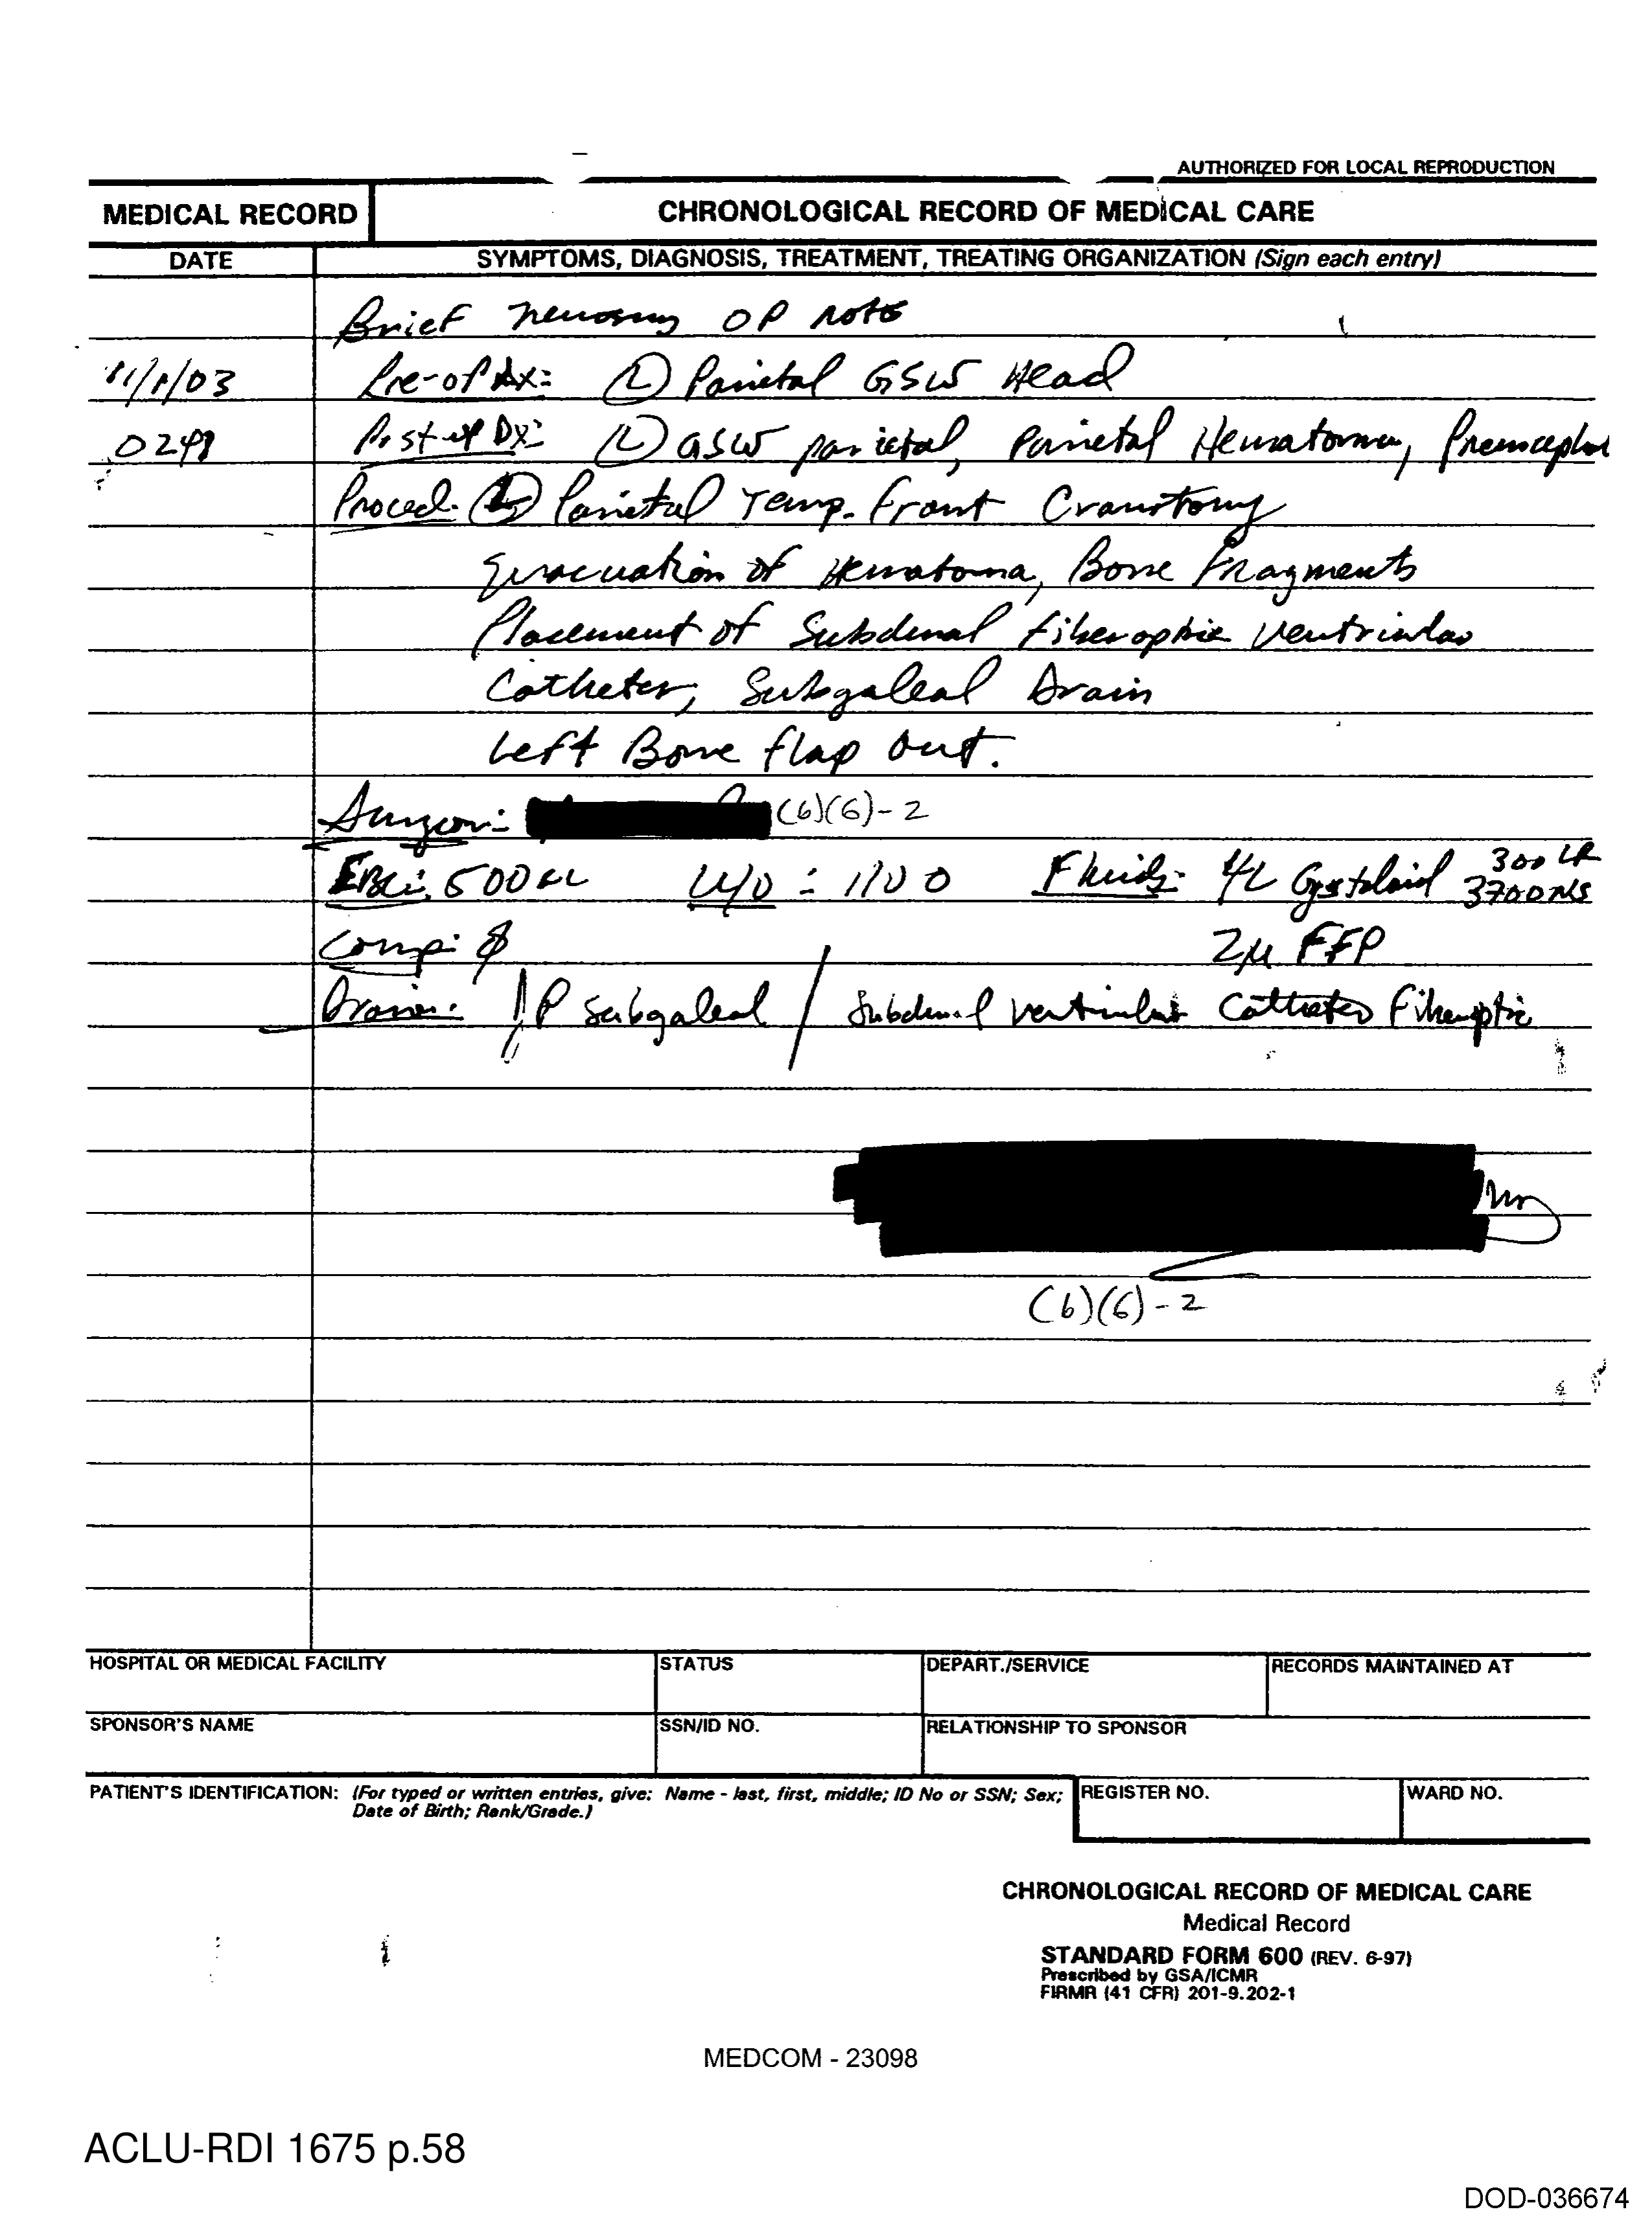 AUTHORIZED FOR LOCAL REPRODUCTION
MEDICAL RECORD
CHRONOLOGICAL RECORD OF MEDICAL CARE
DATE
SYMPTOMS, DIAGNOSIS, TREATMENT, TREATING ORGANIZATION (Sign each entry)
Brief OP note
11/1/03 Pre-op Dx: (L) Parietal GSW Head
Post-op Dx: (L) GSW parietal, Parietal Hematoma,
Proced. (L) Parietal Temp. Front Craniotomy
Evacuation of Hematoma, Bone Fragments
Placement of Subdural Fiberoptic Ventricular
Catheter, Subgaleal Drain
Left Bone flap out.
Surgeon: (b)(6)-2
EBL: 500cc U/O: 1100 Fluids: 4L Crystaloid 300 LR
3700 NS
Comp: 2u FFP
Drains: JP subgaleal / Subdural ventricular Catheter Fiberoptic
(b)(6)-2
HOSPITAL OR MEDICAL FACILITY
STATUS
DEPART./SERVICE
RECORDS MAINTAINED AT
SPONSOR'S NAME
SSN/ID NO.
RELATIONSHIP TO SPONSOR
PATIENT'S IDENTIFICATION: (For typed or written entries, give: Name - last, first, middle; ID No or SSN; Sex;
Date of Birth; Rank/Grade.)
REGISTER NO.
WARD NO.
CHRONOLOGICAL RECORD OF MEDICAL CARE
Medical Record
STANDARD FORM 600 (REV. 6-97)
Prescribed by GSA/ICMR
FIRMR (41 CFR) 201-9.202-1
MEDCOM - 23098
ACLU-RDI 1675 p.58
DOD-036674